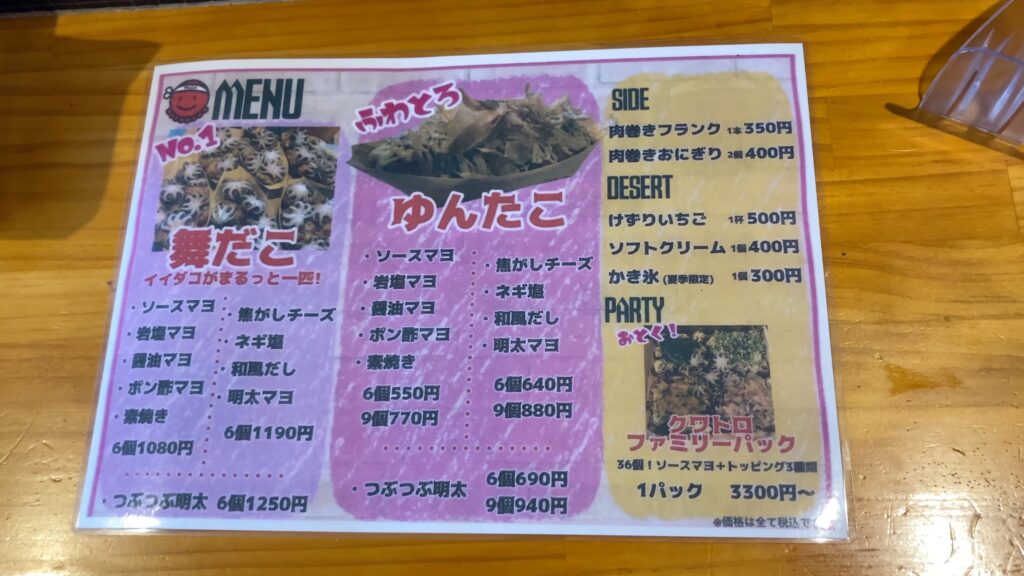 MENU
No.1
舞だこ
イイダコがまるっと一匹!
・ソースマヨ
・岩塩マヨ
・醤油マヨ
・ポン酢マヨ
・素焼き
6個1080円
・焦がしチーズ
・ネギ塩
・和風だし
・明太マヨ
6個1190円
・つぶつぶ明太 6個1250円
ふわとろ
ゆんたこ
・ソースマヨ
・岩塩マヨ
・醤油マヨ
・ポン酢マヨ
・素焼き
6個550円
9個770円
・焦がしチーズ
・ネギ塩
・和風だし
・明太マヨ
6個640円
9個880円
・つぶつぶ明太
6個690円
9個940円
SIDE
肉巻きフランク 1本350円
肉巻きおにぎり 2個400円
DESERT
けずりいちご 1杯500円
ソフトクリーム 1個400円
かき氷(夏季限定) 1個300円
PARTY
おとく!
クワトロ
ファミリーパック
36個!ソースマヨ+トッピング3種類
1パック 3300円〜
※価格は全て税込で